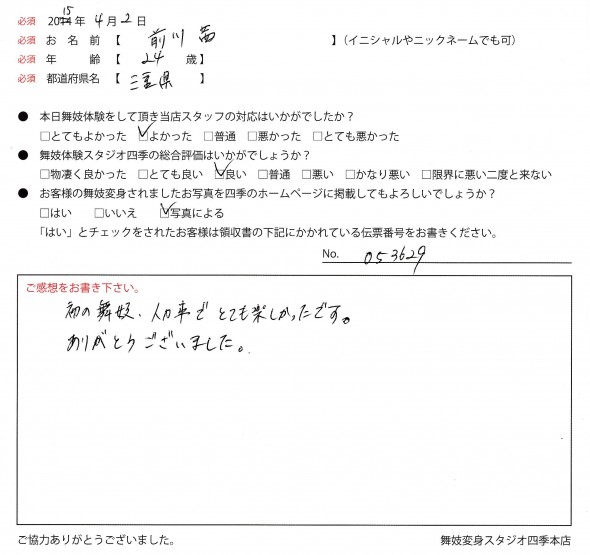 必須 2014 15年 4月2日
必須 お名前【 前川 茜 】(イニシャルやニックネームでも可)
必須 年齢【 24 歳】
必須 都道府県名【 三重県 】
● 本日舞妓体験をして頂き当店スタッフの対応はいかがでしたか?
□とてもよかった ☑よかった □普通 □悪かった □とても悪かった
● 舞妓体験スタジオ四季の総合評価はいかがでしょうか?
□物凄く良かった □とても良い ☑良い □普通 □悪い □かなり悪い □限界に悪い二度と来ない
● お客様の舞妓変身されましたお写真を四季のホームページに掲載してもよろしいでしょうか?
□はい □いいえ ☑写真による
「はい」とチェックをされたお客様は領収書の下記にかかれている伝票番号をお書きください。
No. 053629
ご感想をお書き下さい。
初の舞妓、人力車でとても楽しかったです。
ありがとうございました。
ご協力ありがとうございました。 舞妓変身スタジオ四季本店